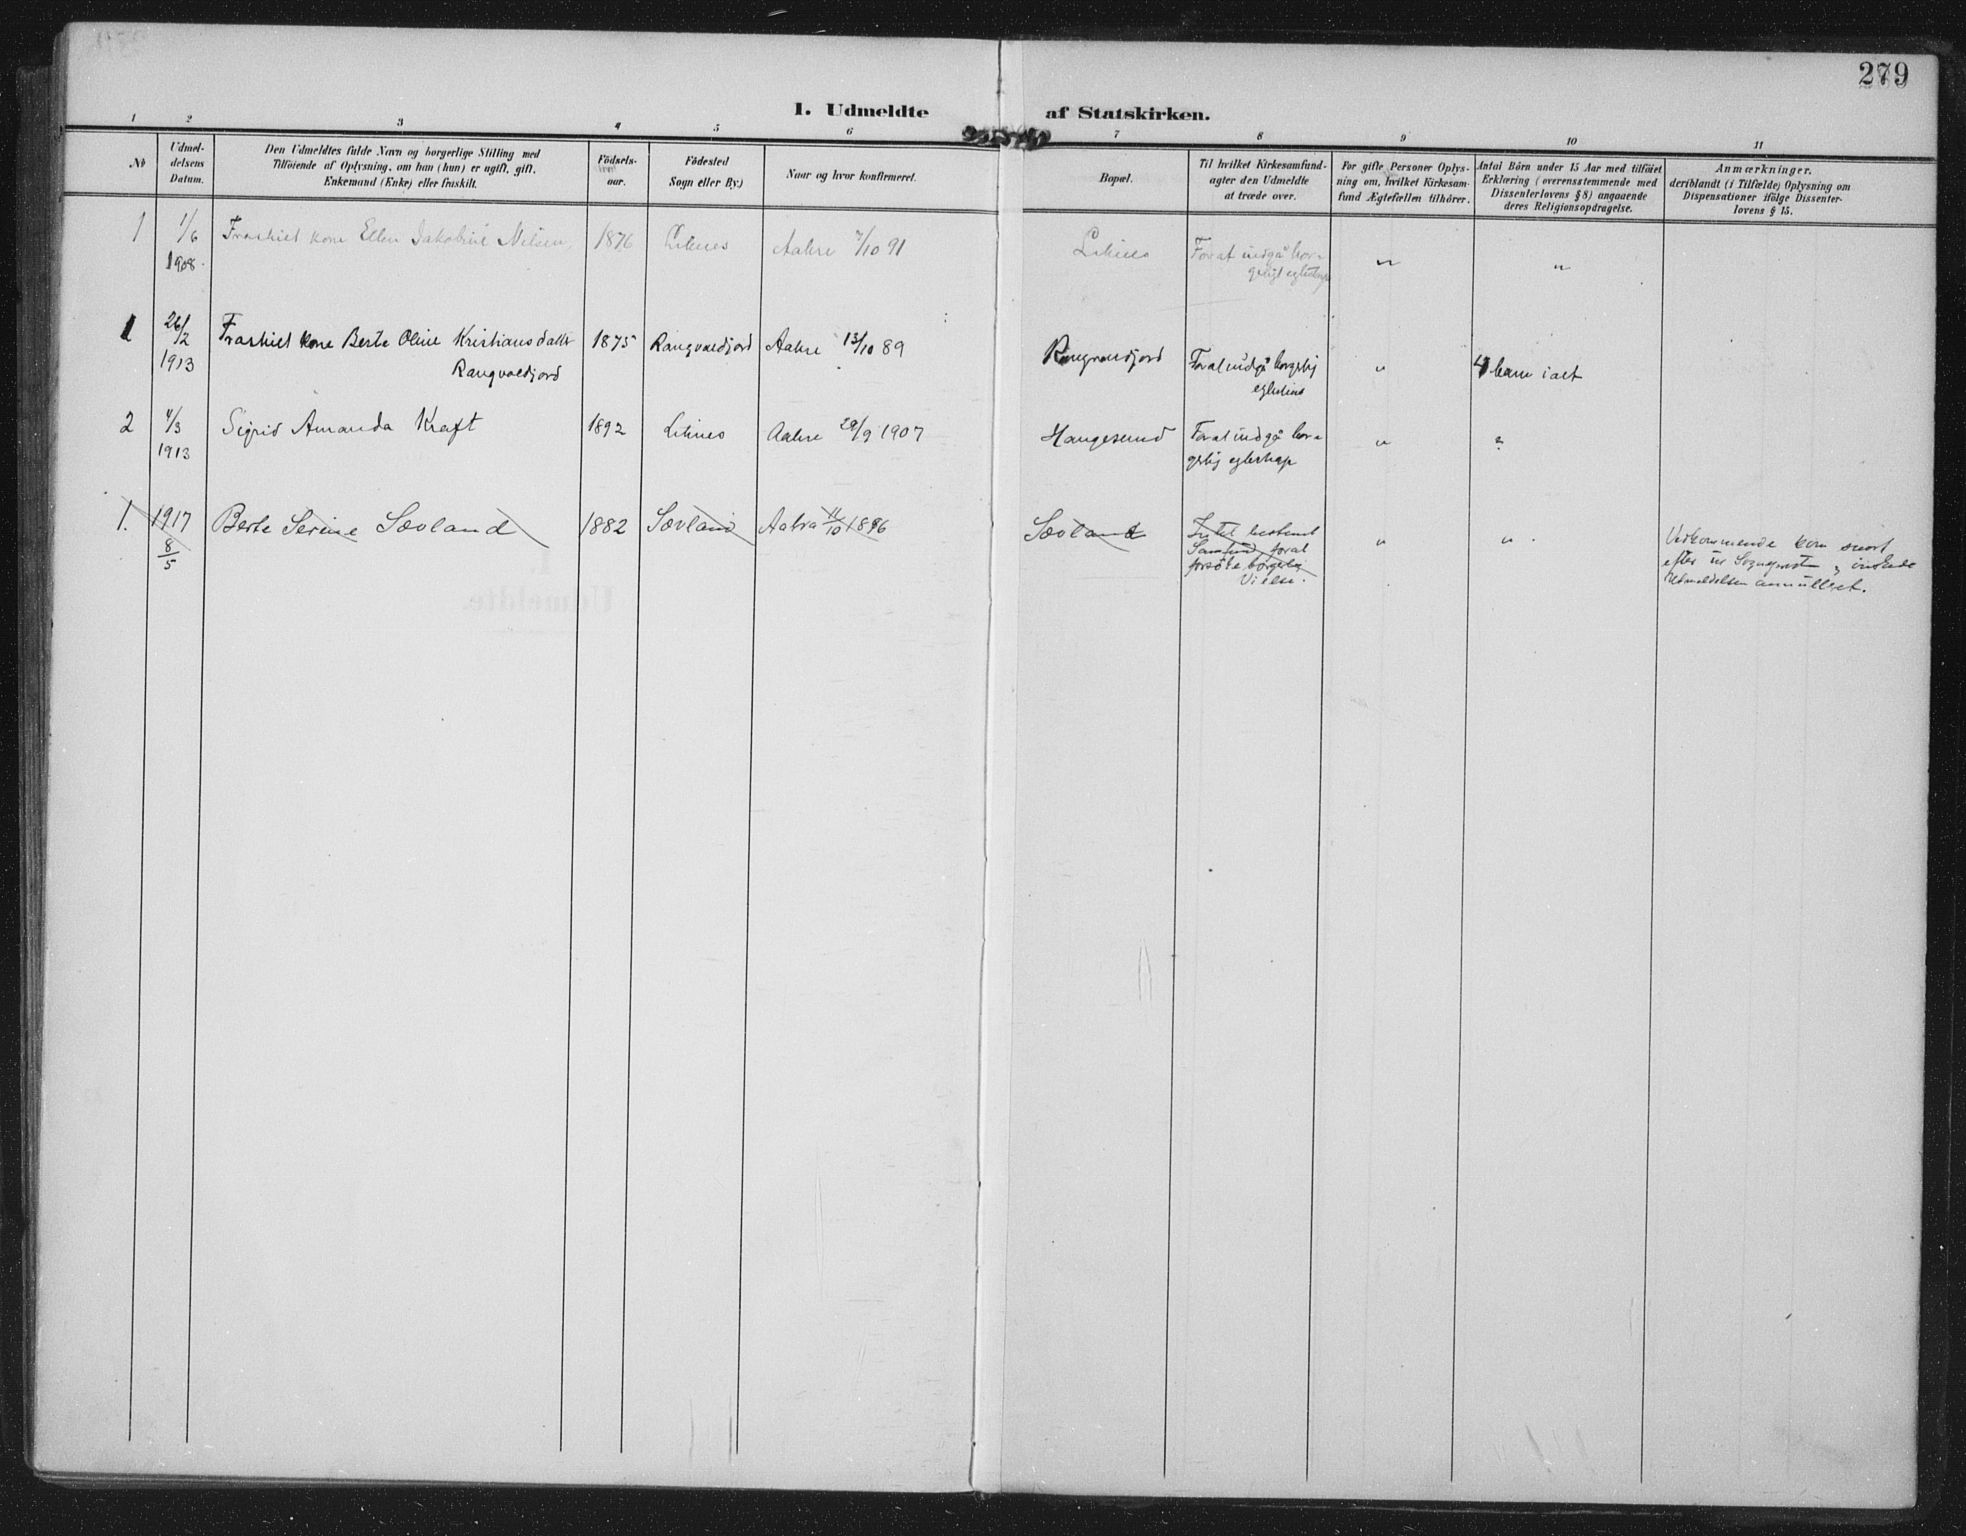 279
1. Udmeldte af Statskirken.
1 2 3 4 5 6 7 8 9 10 11
No
Udmel-
delsens
Datum.
Den Udmeldtes fulde Navn og borgerlige Stilling med
Tilföiende af Oplysning, om han (hun) er ugift, gift,
Enkemand (Enke) eller fraskilt.
Födsels-
aar.
Födested
Sogn eller By.)
Naar og hvor konfirmeret.
Bopæl.
Til hvilket Kirkesamfund-
agter den Udmeldte
at træde over.
For gifte Personer Oplys-
ning om, hvilket Kirkesam-
fund Ægtefællen tilhörer.
Antal Börn under 15 Aar med tilföiet
Erklæring (overensstemmende med
Dissenterlovens § 8) angaaende
deres Religionsopdragelse.
Anmærkninger,
deriblandt (i Tilfælde) Oplysning om
Dispensationer ifölge Dissenter-
lovens § 15.
1 1/6 Fraskilt kone Ellen Jakobine Nilsen, 1876 Liknes Aakre 7/10 91 Liknes For at indgå bor- " "
1908. gerligt
1 26/2 Fraskilt kone Berte Oline Kristiansdatter 1875 Rangvaldjord Aakre 13/10 89 Rangvaldjord For at indgå borgerlig " 4 barn i alt
1913 Rangvaldjord
2 4/3 Sigrid Amanda Kraft 1892 Liknes Aakre 29/9 1907 Haugesund For at indgå bor- "
1913 gerlig egteskap
1. 1917 Berte Serine Sævland 1882 Sævland Aakra 11/10 1896 Sævland Intet bestemt " " Vedkommende kom snart
8/5 Samfund, for at efter til Sogneprest og önskede
forsöke borgerlig Utmeldelsen annulleret.
Vielse.
Udmeldte.